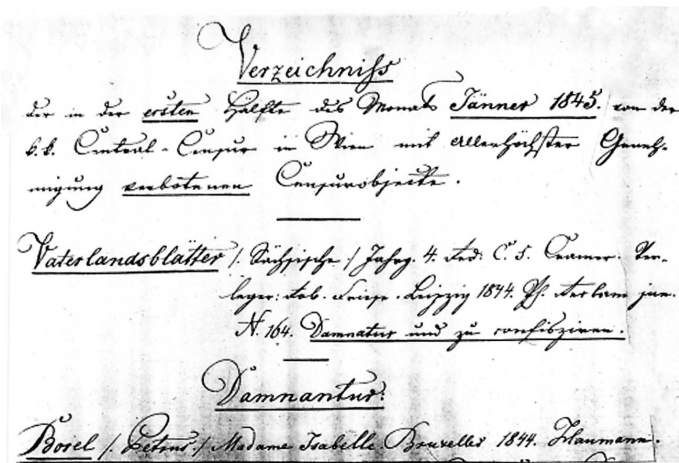 Verzeichniß
der in der ersten Hälfte des Monats Jänner 1845. von der
k. k. Central-Censur in Wien mit Allerhöchster Geneh-
migung verbotenen Censurobjecte.
Vaterlandsblätter /: Sächsische :/ Jahrg. 4. Red: C. Cramer. Ver-
leger: Rob. Friese. Leipzig 1844.
N. 164. Damnatur und zu confisziren.
Damnantur:
Borel /: Petrus :/ Madame Isabelle Bruxelles 1844. Haumann.